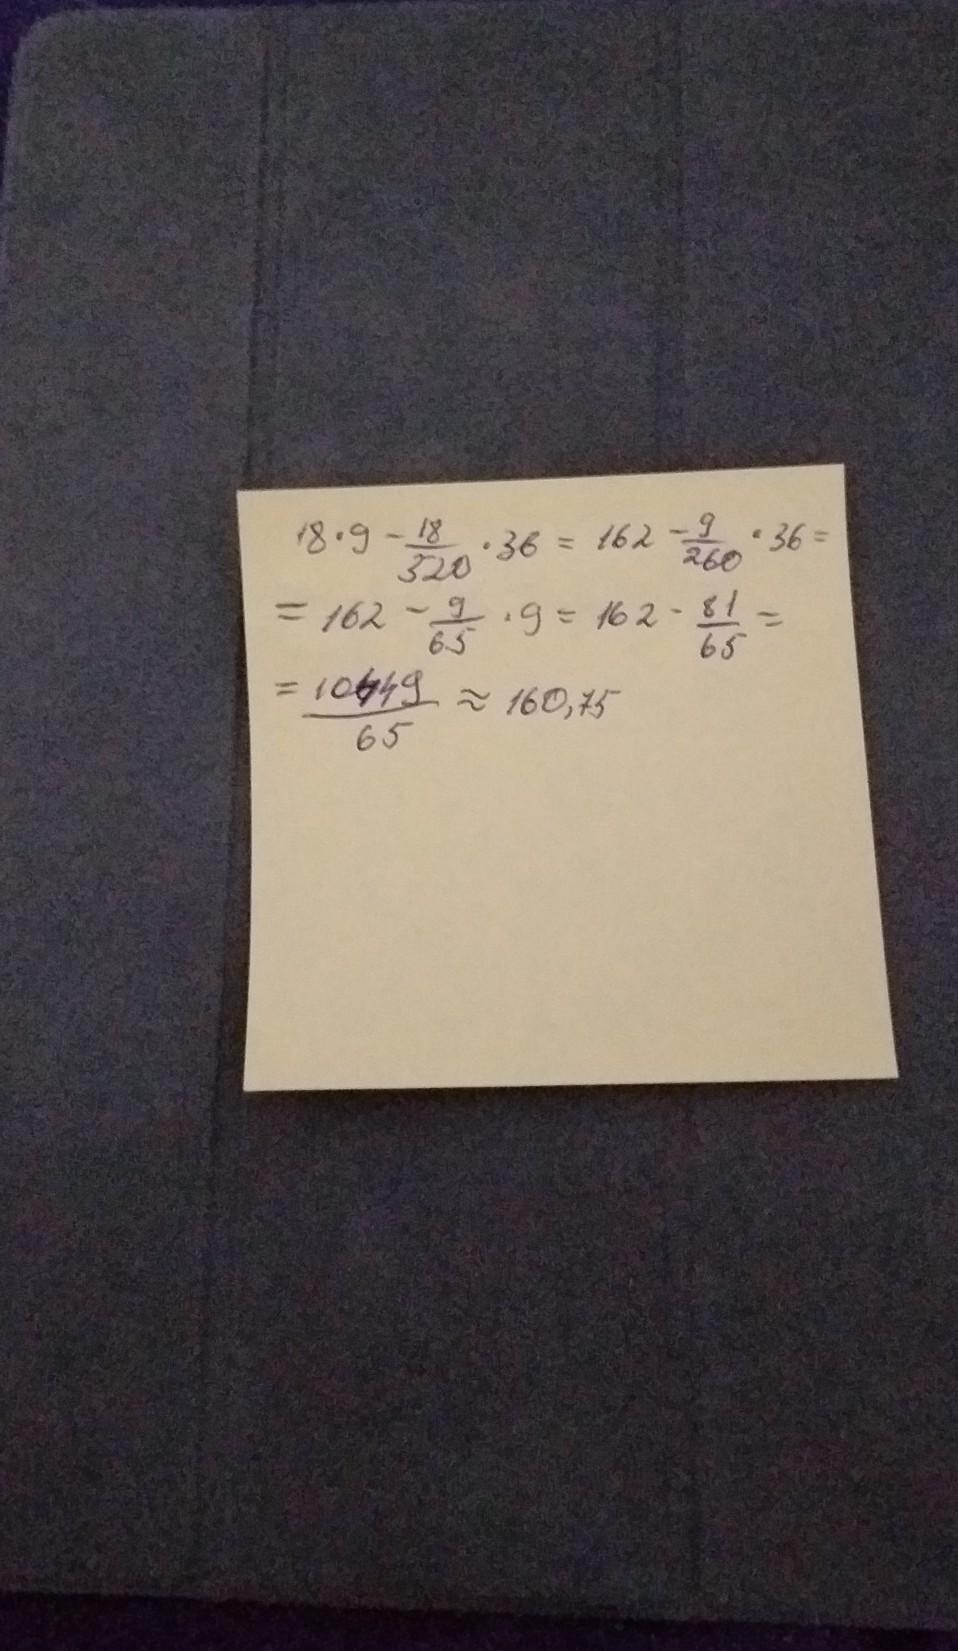 18·9 - 18/520 · 36 = 162 - 9/260 · 36 =
= 162 - 9/65 · 9 = 162 - 81/65 =
= 10449/65 ≈ 160,75